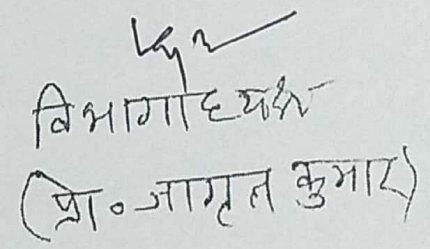 विभागाध्यक्ष
(प्रो० जागृत कुमार)